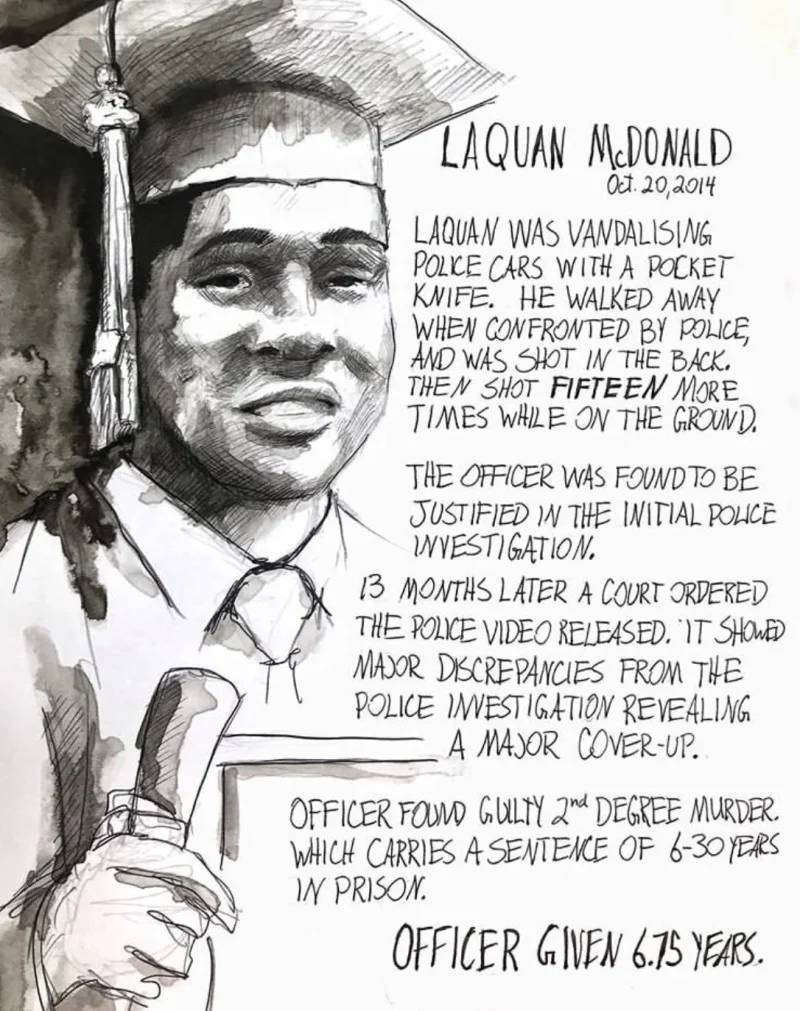 LAQUAN McDONALD
Oct. 20, 2014
LAQUAN WAS VANDALISING
POLICE CARS WITH A POCKET
KNIFE. HE WALKED AWAY
WHEN CONFRONTED BY POLICE,
AND WAS SHOT IN THE BACK.
THEN SHOT FIFTEEN MORE
TIMES WHILE ON THE GROUND.
THE OFFICER WAS FOUND TO BE
JUSTIFIED IN THE INITIAL POLICE
INVESTIGATION.
13 MONTHS LATER A COURT ORDERED
THE POLICE VIDEO RELEASED. IT SHOWED
MAJOR DISCREPANCIES FROM THE
POLICE INVESTIGATION REVEALING
A MAJOR COVER-UP.
OFFICER FOUND GUILTY 2nd DEGREE MURDER.
WHICH CARRIES A SENTENCE OF 6-30 YEARS
IN PRISON.
OFFICER GIVEN 6.75 YEARS.